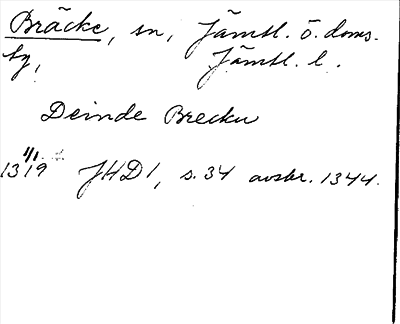 Bräcke, sn, Jämtl. ö. doms.
tg, Jämtl. l.
Deinde Brecku
1/1
1319 JHD 1, s. 34 avskr. 1344.